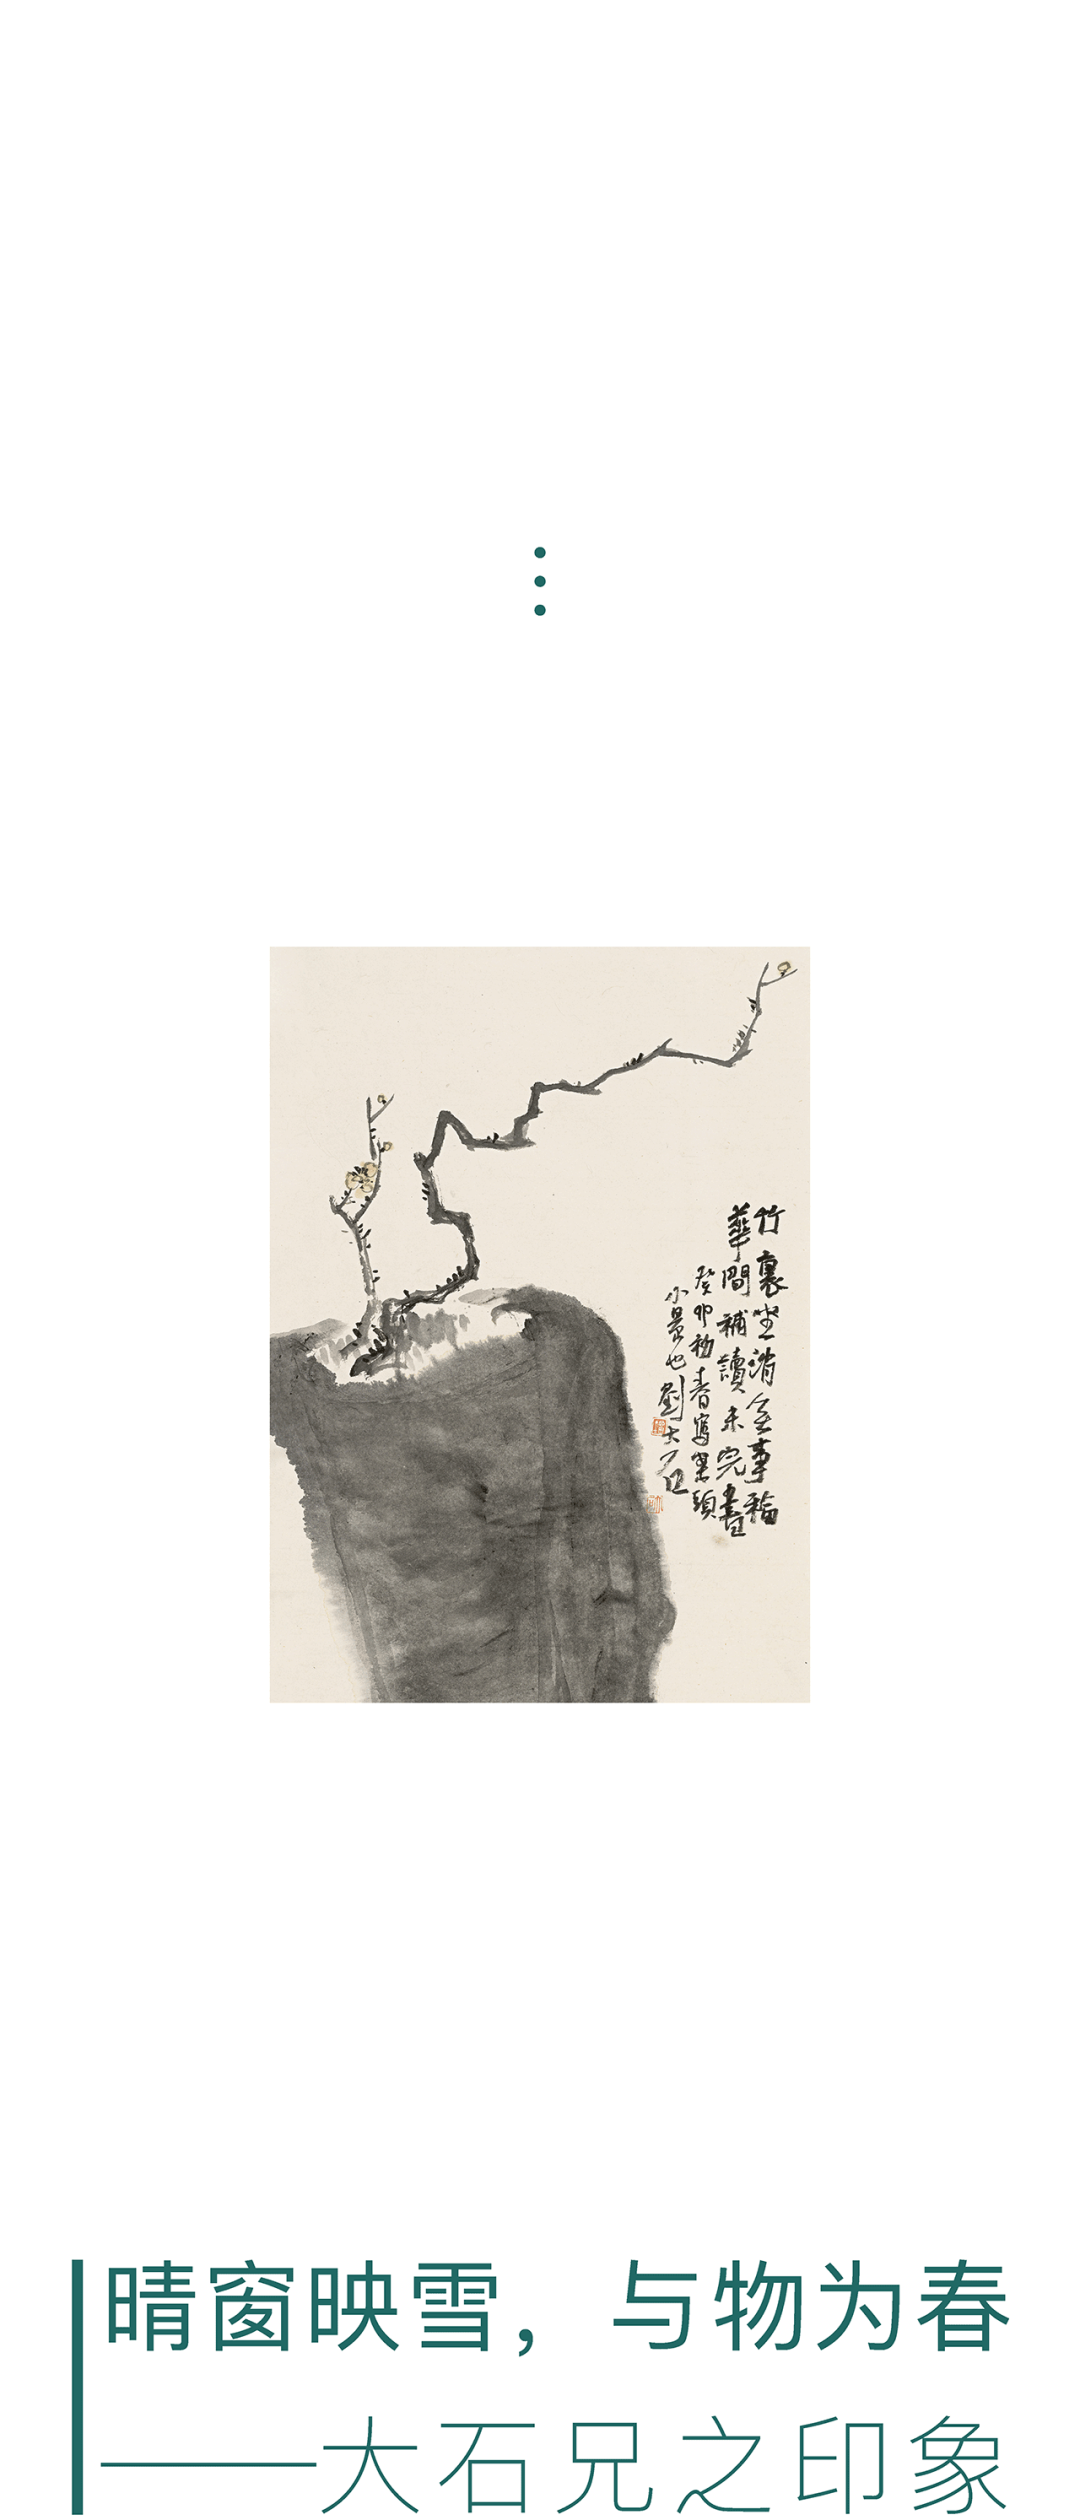 竹裏坐消無事福
華間補讀未完書
癸卯初春寫案頭
小景也劉大石
晴窗映雪，与物为春
——大石兄之印象